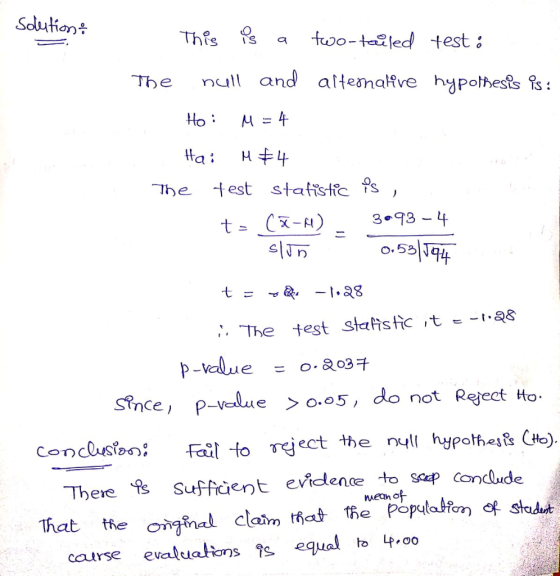 Solution:
This is a two-tailed test:
The null and alternative hypothesis is:
Ho: μ = 4
Ha: μ ≠ 4
The test statistic is,
t = (x̄-μ) / s/√n = 3.93 - 4 / 0.53/√94
t = -1.28
∴ The test statistic, t = -1.28
P-value = 0.2037
Since, p-value > 0.05, do not Reject Ho.
Conclusion: Fail to reject the null hypothesis (Ho).
There is sufficient evidence to conclude
That the original claim that the mean of population of student
course evaluations is equal to 4.00